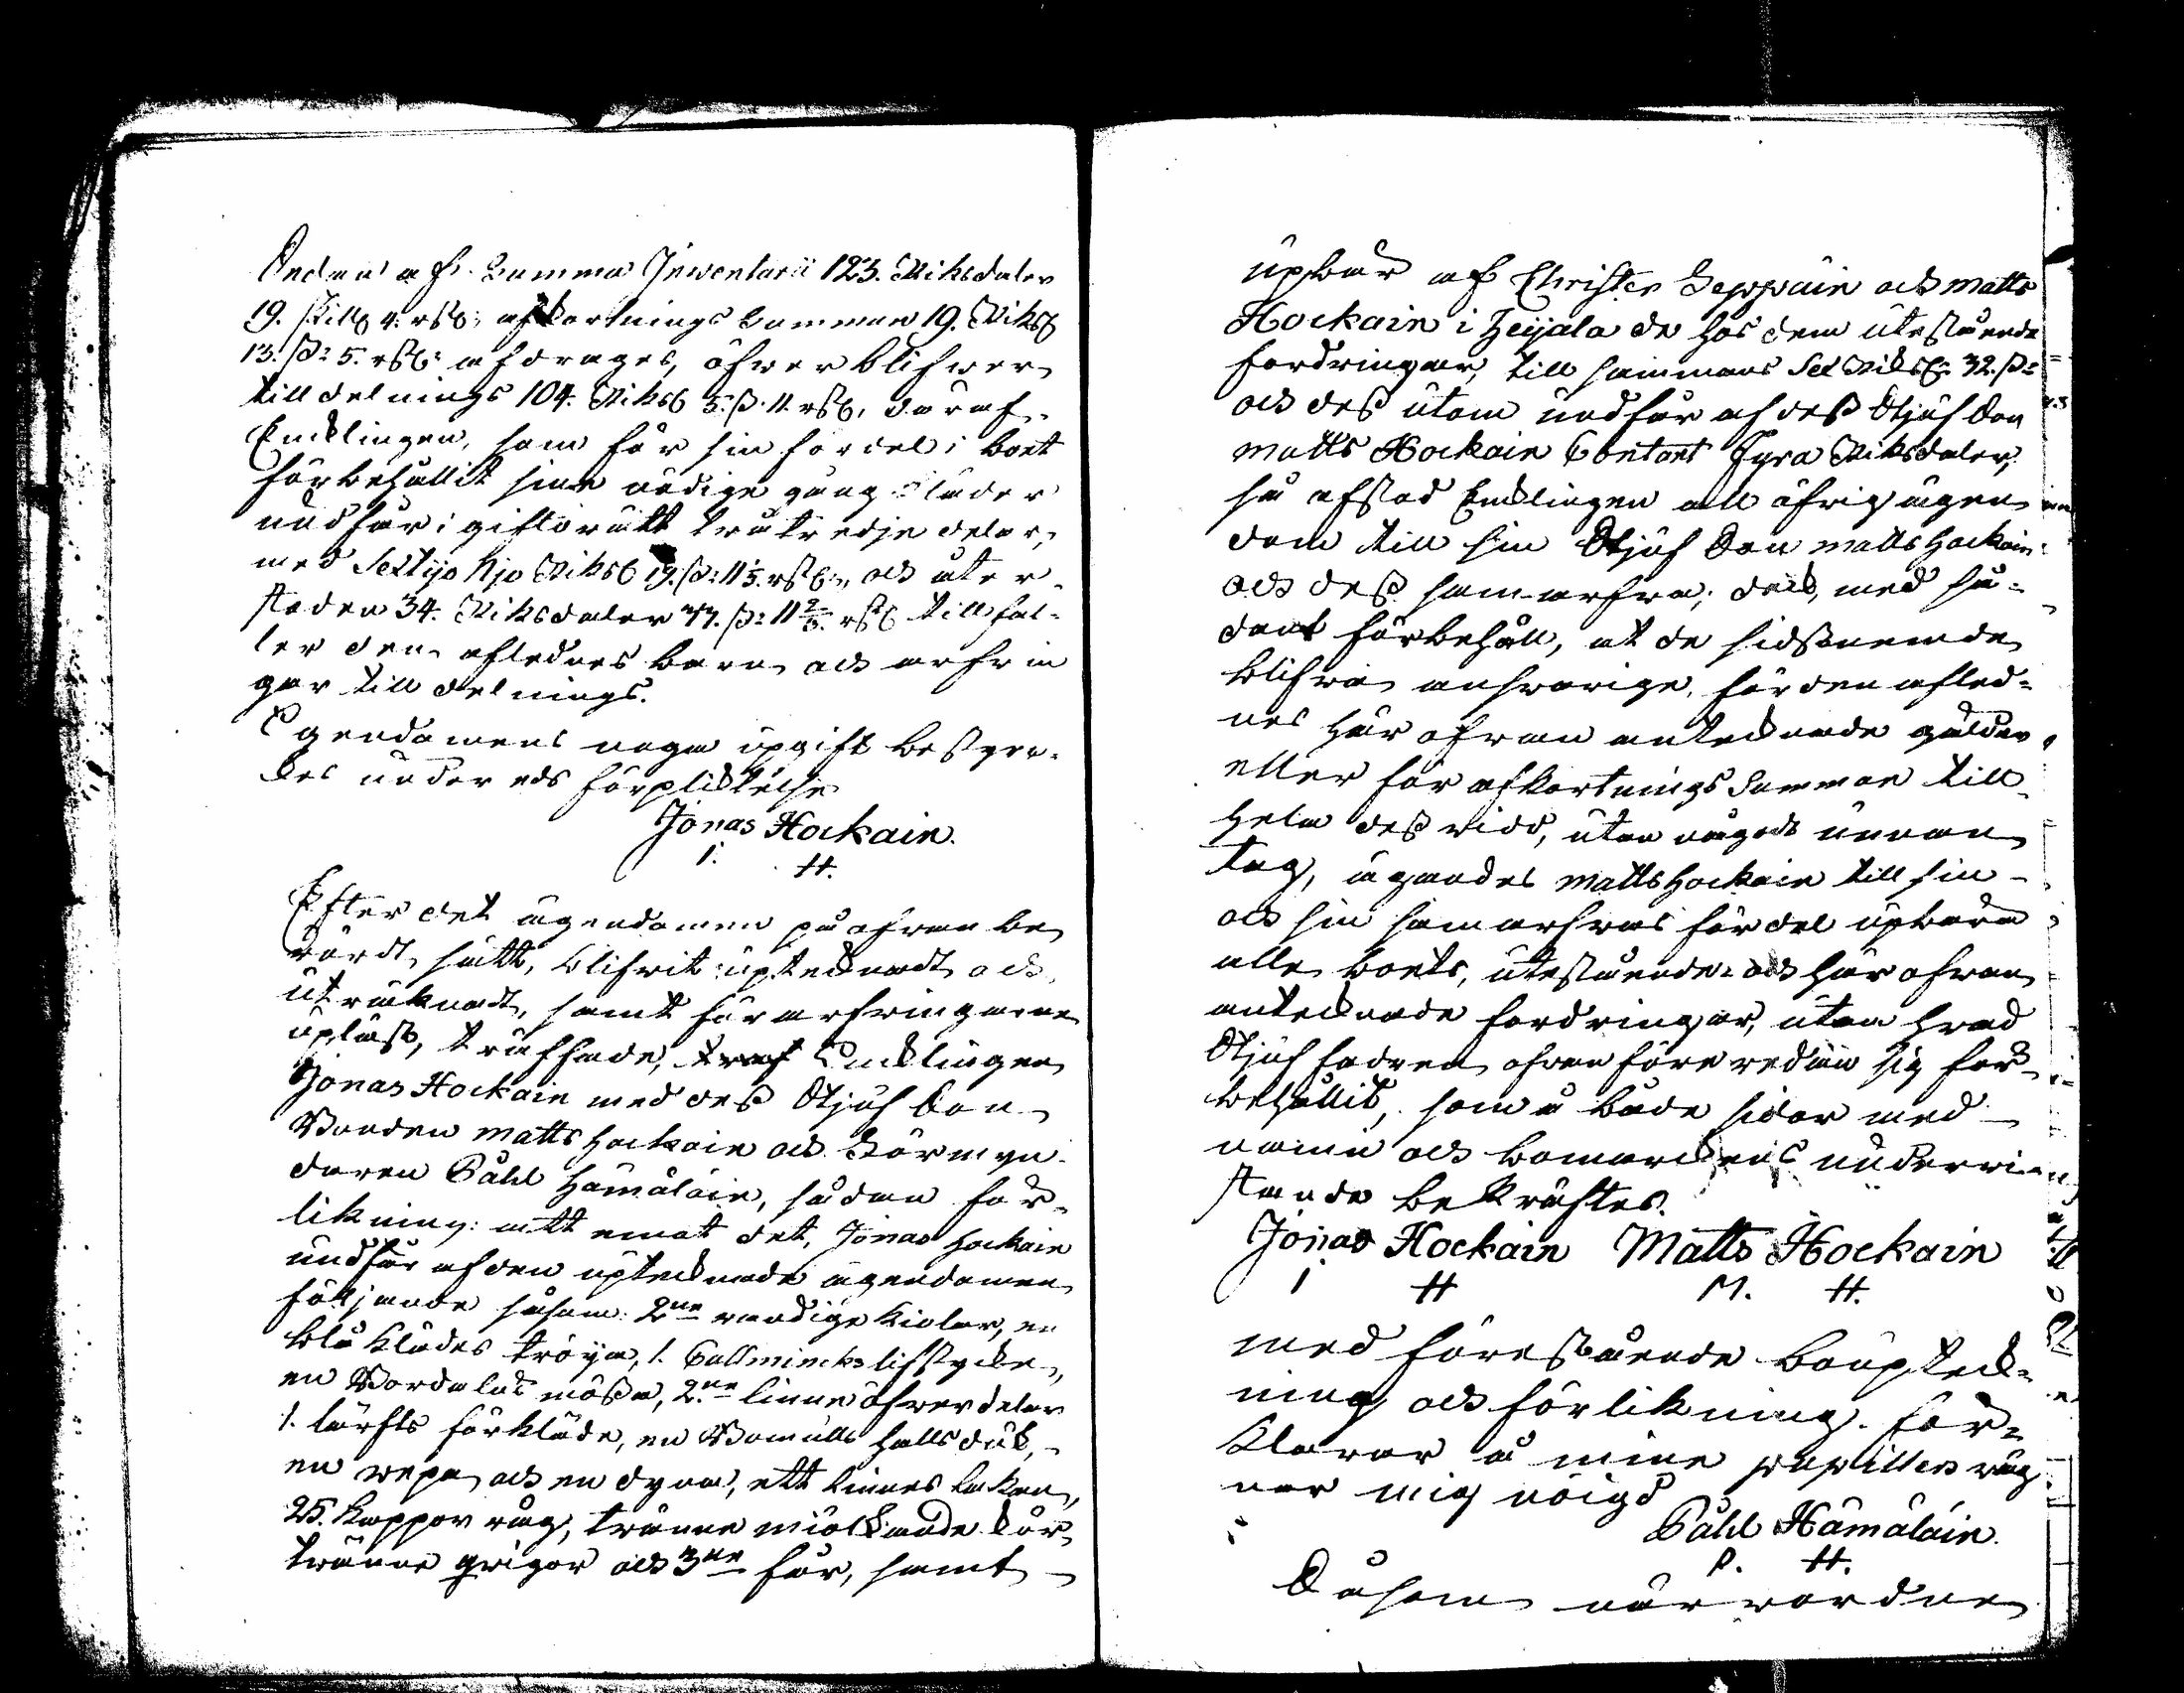 Sedan af Summa Inventarii 123. Riksdaler
19. skill 4. rst: afkortnings Summan 19. Riksd
13. s: 5. rst: afdrages, öfwerblifwer
till delnings 104. Riksd 5. s. 11. rst, däraf
Enklingen, som för sin fördel i boet
förbehållit sine nödige gångkläder
undfår i giftorätt twåtredjedelar,
med Sextijo Nijo Riksd 19. s: 11 1/3. rst:, och åter-
stoden 34. Riksdaler s: 11 2/3. rst tillfal-
ler den aflednes barn och arfwin
gar till delnings.
Egendomens noga upgift bestyr-
kes under eds förpliktelse
Jonas Hockain.
I. H.
Efter det ägendomen på ofwan be
rördt sätt, blifwit upteknadt och
uträknadt, samt för arfwingarne
upläst, träffade, Enklingen
Jonas Hockain med dess Stjuf Son
Bonden Matts Hockain och Förmyn-
daren Påhl Hämäläin, sådan för-
likning: att emot det, Jonas Hockain
undfår af den upteknade ägendomen
följande såsom: 2ne wardige Kiolar, en
blå Klädes tröya, 1. Callmincks lifstycke,
en mössa, 2ne linne öfwerdelar
1. lärfts förkläde, en Bomulls hallsduk,
en wepa och en dyna, ett linnes lakan,
25. Kappor råg, tränne miölkande kor
tränne qwigor och 3ne får, samt
upbär af Christer Seppäin och Matts
Hockain i Heijala de hos dem utestående
fordringar, till sammans Sex Riksd: 32. s:
och dess utom undfår af dess Stjuf Son
Matts Hockain Contant Fyra Riksdaler,
så afstod Enklingen all öfrig ägen
dom till sin Stjuf Son Matts Hockain
och dess samarfwa; dock, med så-
dant förbehåll, at de sidstnemde
blifwa answarige, för den afled-
nes här ofwan anteknade gälder
eller för afkortnings Summan till
hela dess widd, utan något undan
tag, ägandes Matts Hockain till sin
och sin samarfwas fördel upbära
alle boets, utestående och här ofwan
anteknade fordringar, utan hwad
Stjuffadren ofwanföre redan sig för-
behållit, som å både sidor med
namn och bomärkens underri-
stande bekräftes.
Jonas Hockain Matts Hockain
I H M. H.
Med förestående boupteck-
ning och förlikning. för-
klarar å mine pupillers wäg
nar mig nöigd
Påhl Hämäläin.
P. H.
Såsom närwardne